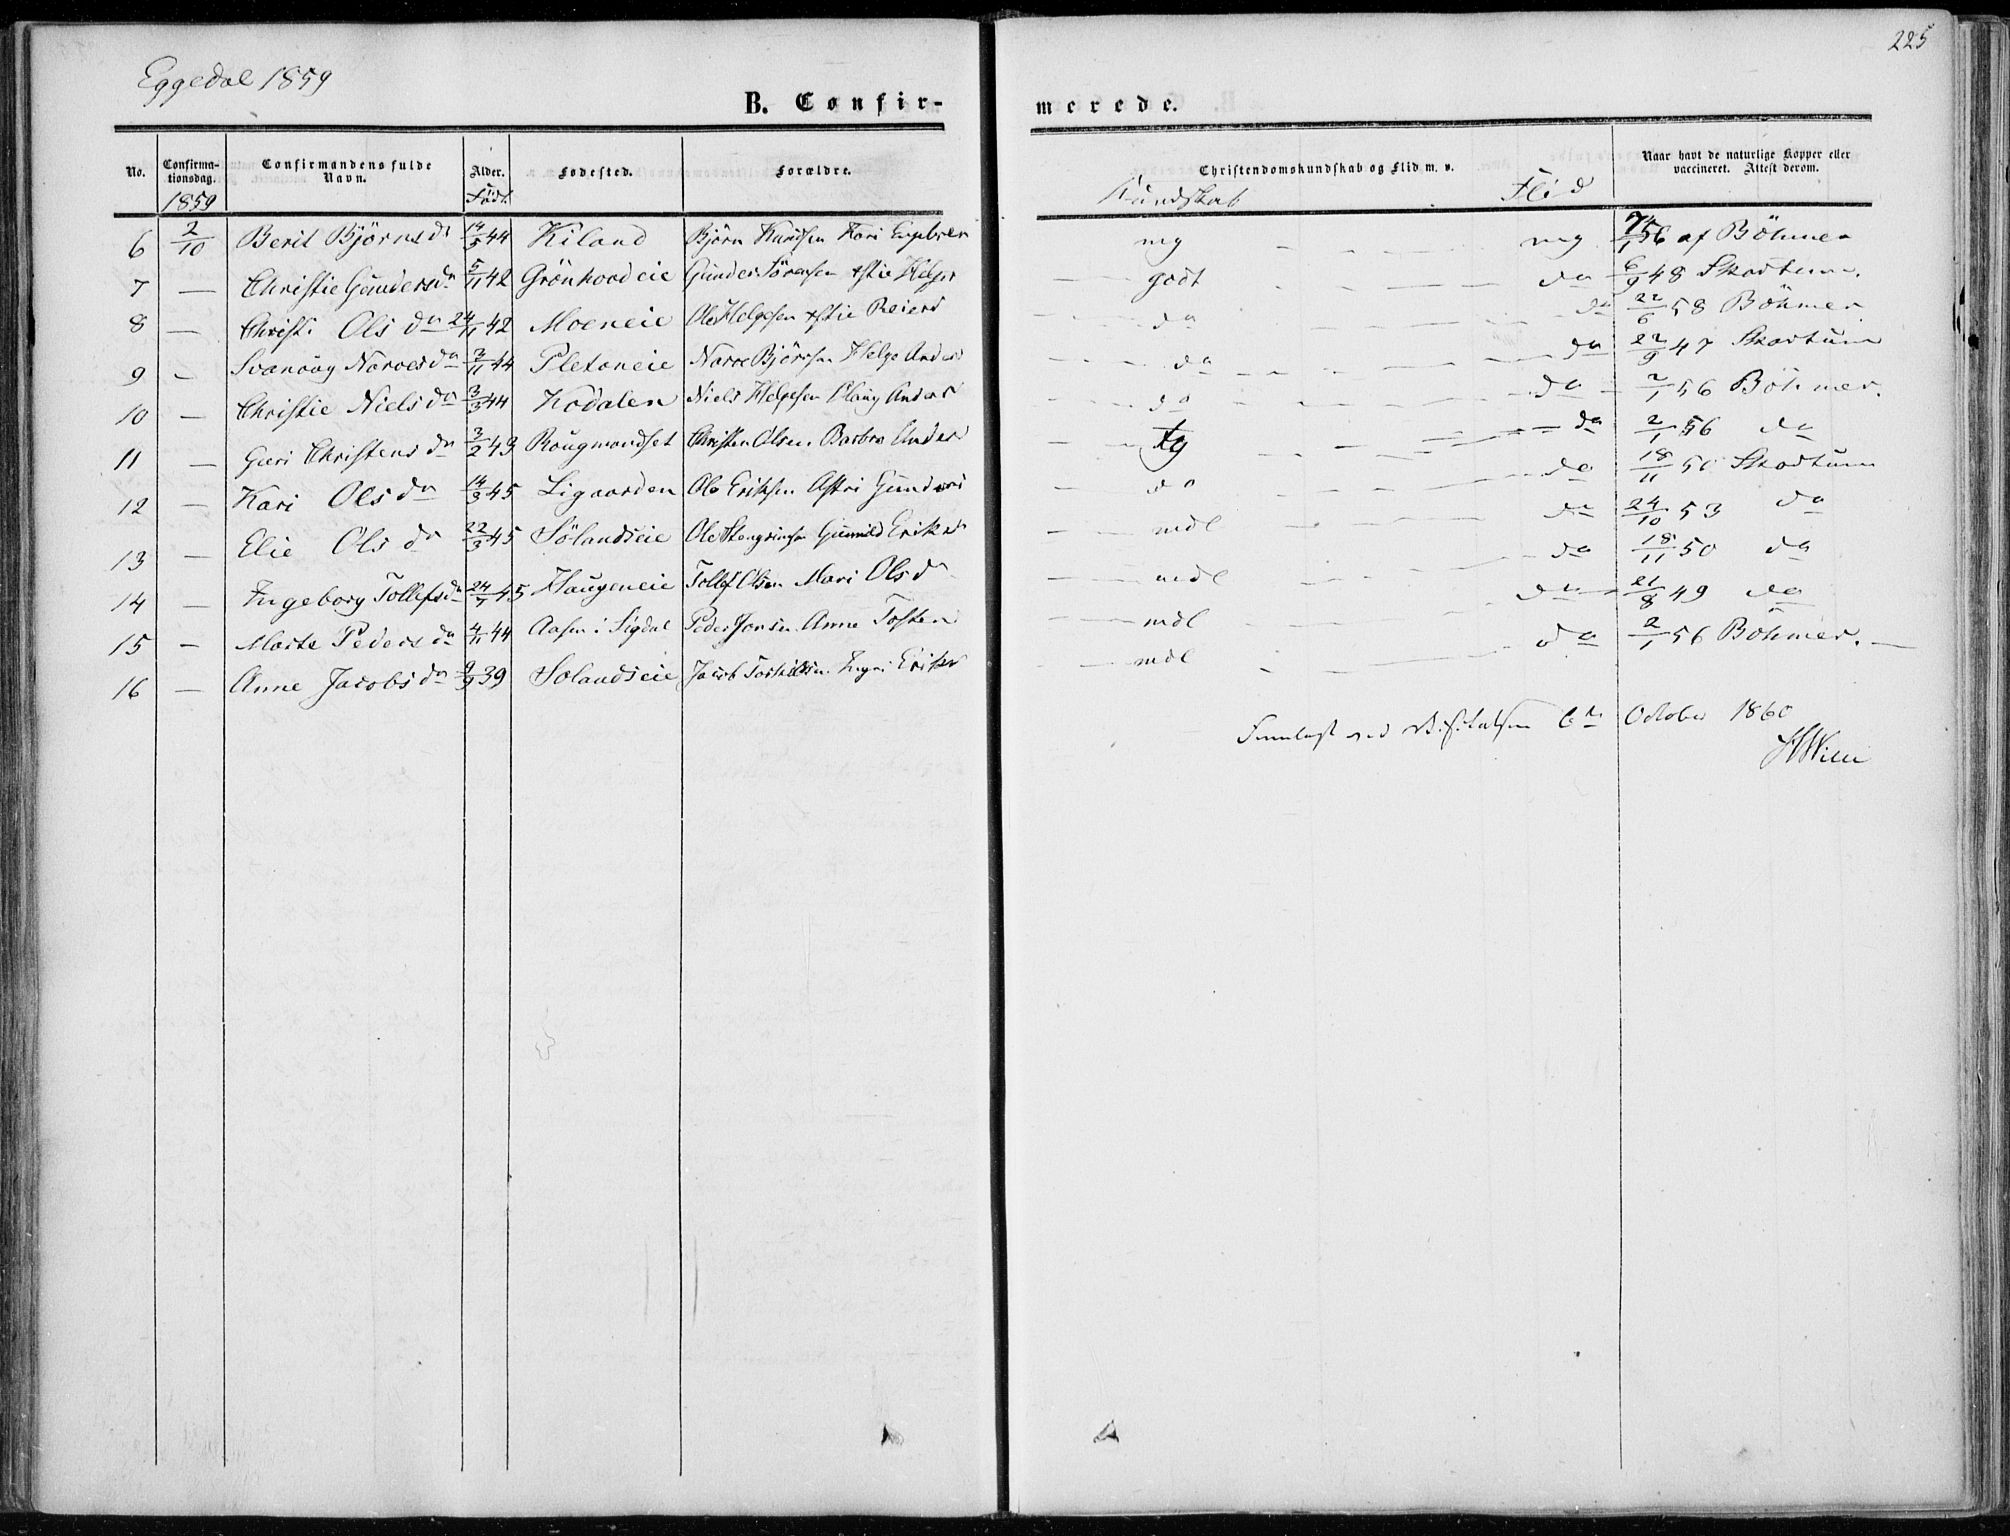 225
Eggedal 1859
B. Confir- merede.
No. Confirma-tionsdag. Confirmandens fulde Navn. Alder. Fødested. Forældre. Christendomskundskab og Flid m. v. Naar havt de naturlige Kopper eller vaccineret. Attest derom.
1859 Født Kundskab Flid
6 2/10 Berit Björnsd. 14/5 44 Kiland Björn Knudsen Kari Engebrets mg mg 7/1 56 af Böhmer
7 — Christie Gundersdr 5/11 42 Grönhovdeie Gunder Sörensen Helges godt do 6/9 48 Skartum.
8 — Christi Olsdr 24/11 42 Moeneie Ole Helgesen Reiers do do 22/6 58 Böhmer
9 — Svanaug Narvesdr 2/11 44 Pletaneie Narve Björnsen Helge Anders do do 22/9 47 Skartum
10 — Christie Nielsdr 3/3 44 Kodalen Niels Helgesen Anders do do 2/1 56 Böhmer.
11 — Guri Christensdr 3/2 43 Christen Olsen Barbro Anders tg do 2/1 56 do
12 — Kari Olsdr 14/3 45 Ligaarden Ole Eriksen Astri Gunders do do 18/11 50 Skartum
13 — Elie Olsdr 22/3 45 Sölandseie Ole Gunnild Eriks mdl do 24/10 53 do
14 — Ingeborg Tollefsdr 24/7 45 Haugeneie Tollef Olsen Mari Olsdr mdl do 18/11 50 do
15 — Marte Pedersdr 4/11 44 Aasen i Sigdal Peder Jonsen Anne Tosten mdl do 21/8 49 do
16 — Anne Jacobsdr 9/9 39 Solandseie Jacob Torkildsen Eriks mdl do 2/1 56 Böhmer. —
6te October 1860